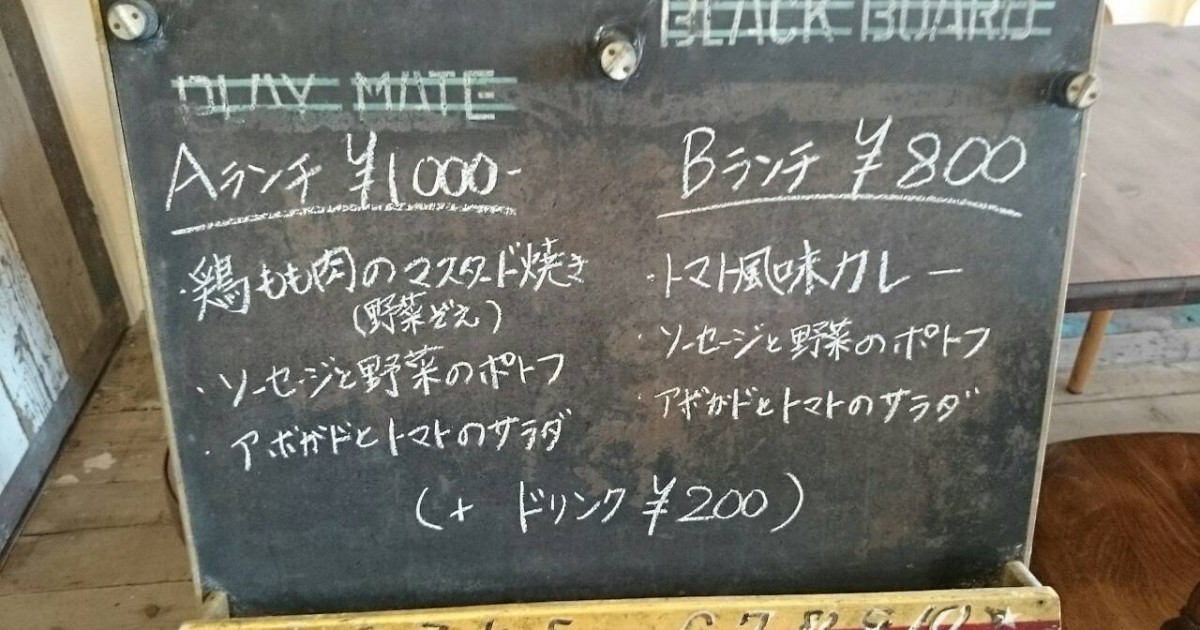 BLACK BOARD
PLAY MATE
Aランチ ¥1000-
・鶏もも肉のマスタード焼き
(野菜ぞえ)
・ソーセージと野菜のポトフ
・アボガドとトマトのサラダ
Bランチ ¥800
・トマト風味カレー
・ソーセージと野菜のポトフ
・アボガドとトマトのサラダ
(+ ドリンク ¥200)
6 7 8 9 10